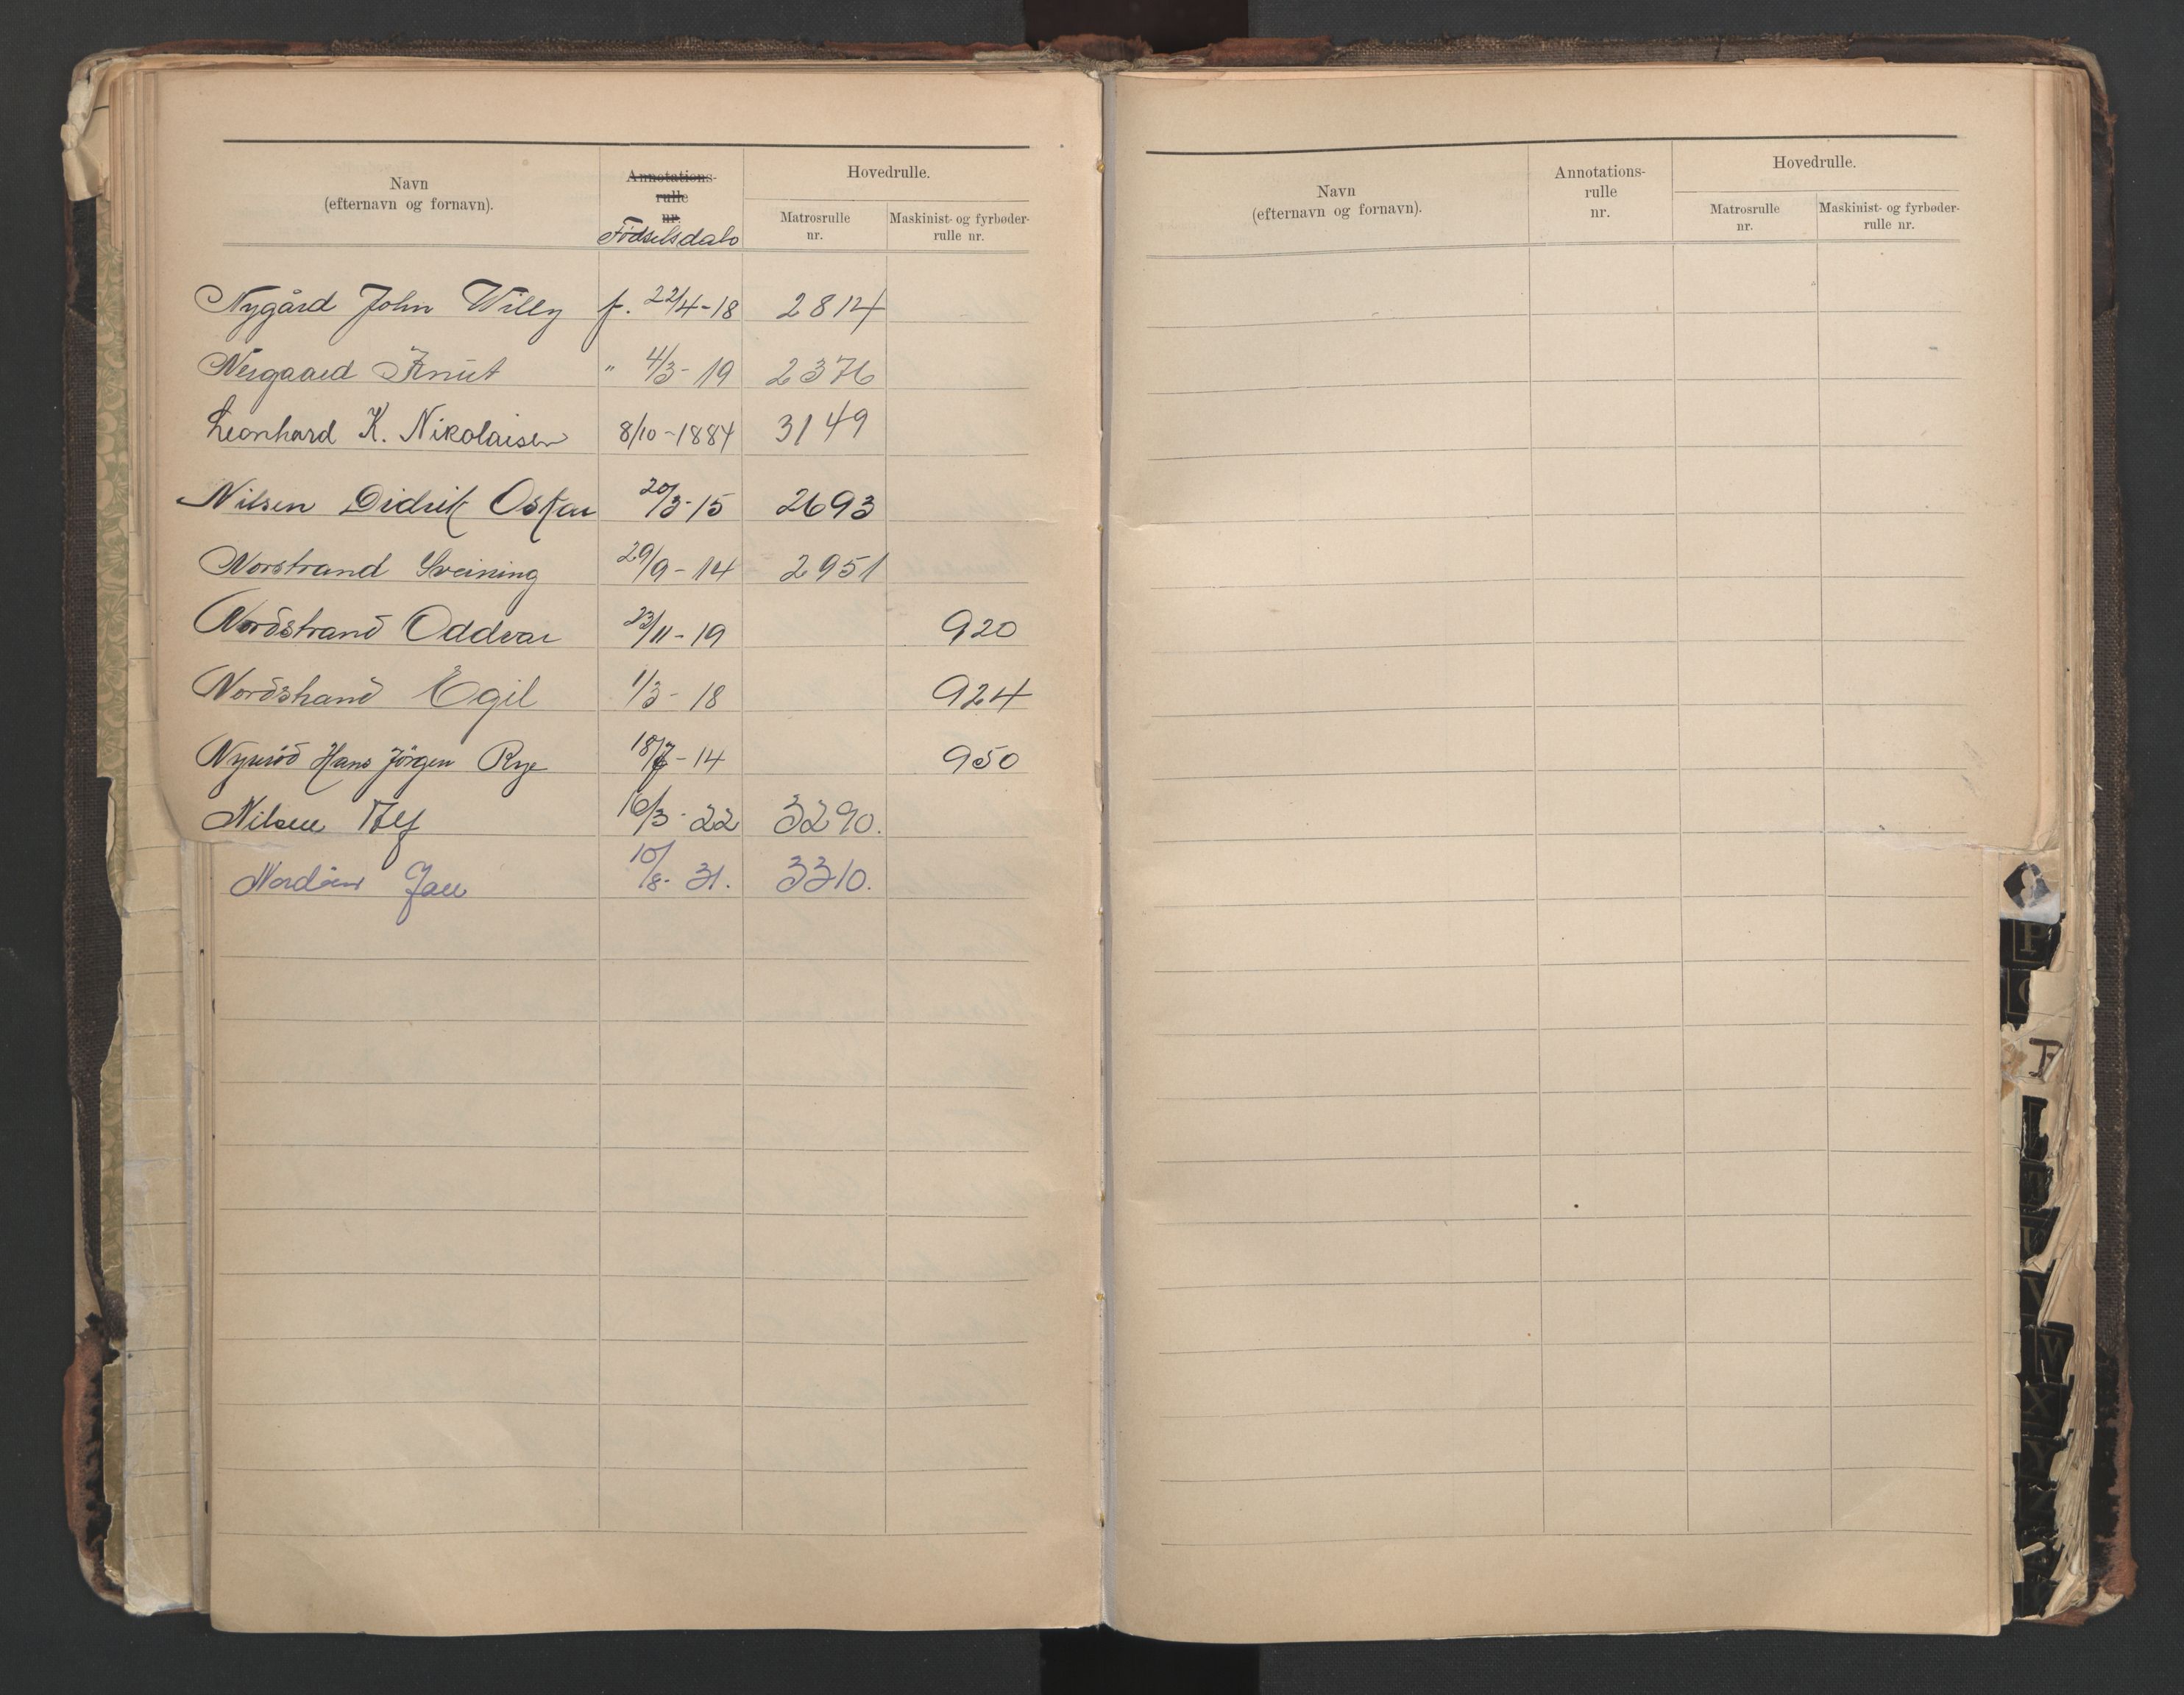 Navn
(efternavn og fornavn).
Annotations-
rulle
nr.
Födselsdato
Hovedrulle.
Matrosrulle
nr.
Maskinist- og fyrbøder-
rulle nr.
Nygård John Willy f. 22/4-18 2814
Nergaard Knut " 4/3-19 2376
Leonhard K. Nikolaisen 8/10-1884 3149
Nilsen Didrik Oskar 20/3-15 2693
Norstrand Sveining 29/9-14 2951
Nordstrand Oddvar 23/11-19 920
Nordstrand Egil 1/3-18 924
Hans Jörgen Rye 18/7-14 950
Nilsen Alf 16/3-22 3290.
Jan 10/8-31. 3310.
Navn
(efternavn og fornavn).
Annotations-
rulle
nr.
Hovedrulle.
Matrosrulle
nr.
Maskinist- og fyrbøder-
rulle nr.
P
W
X
Y